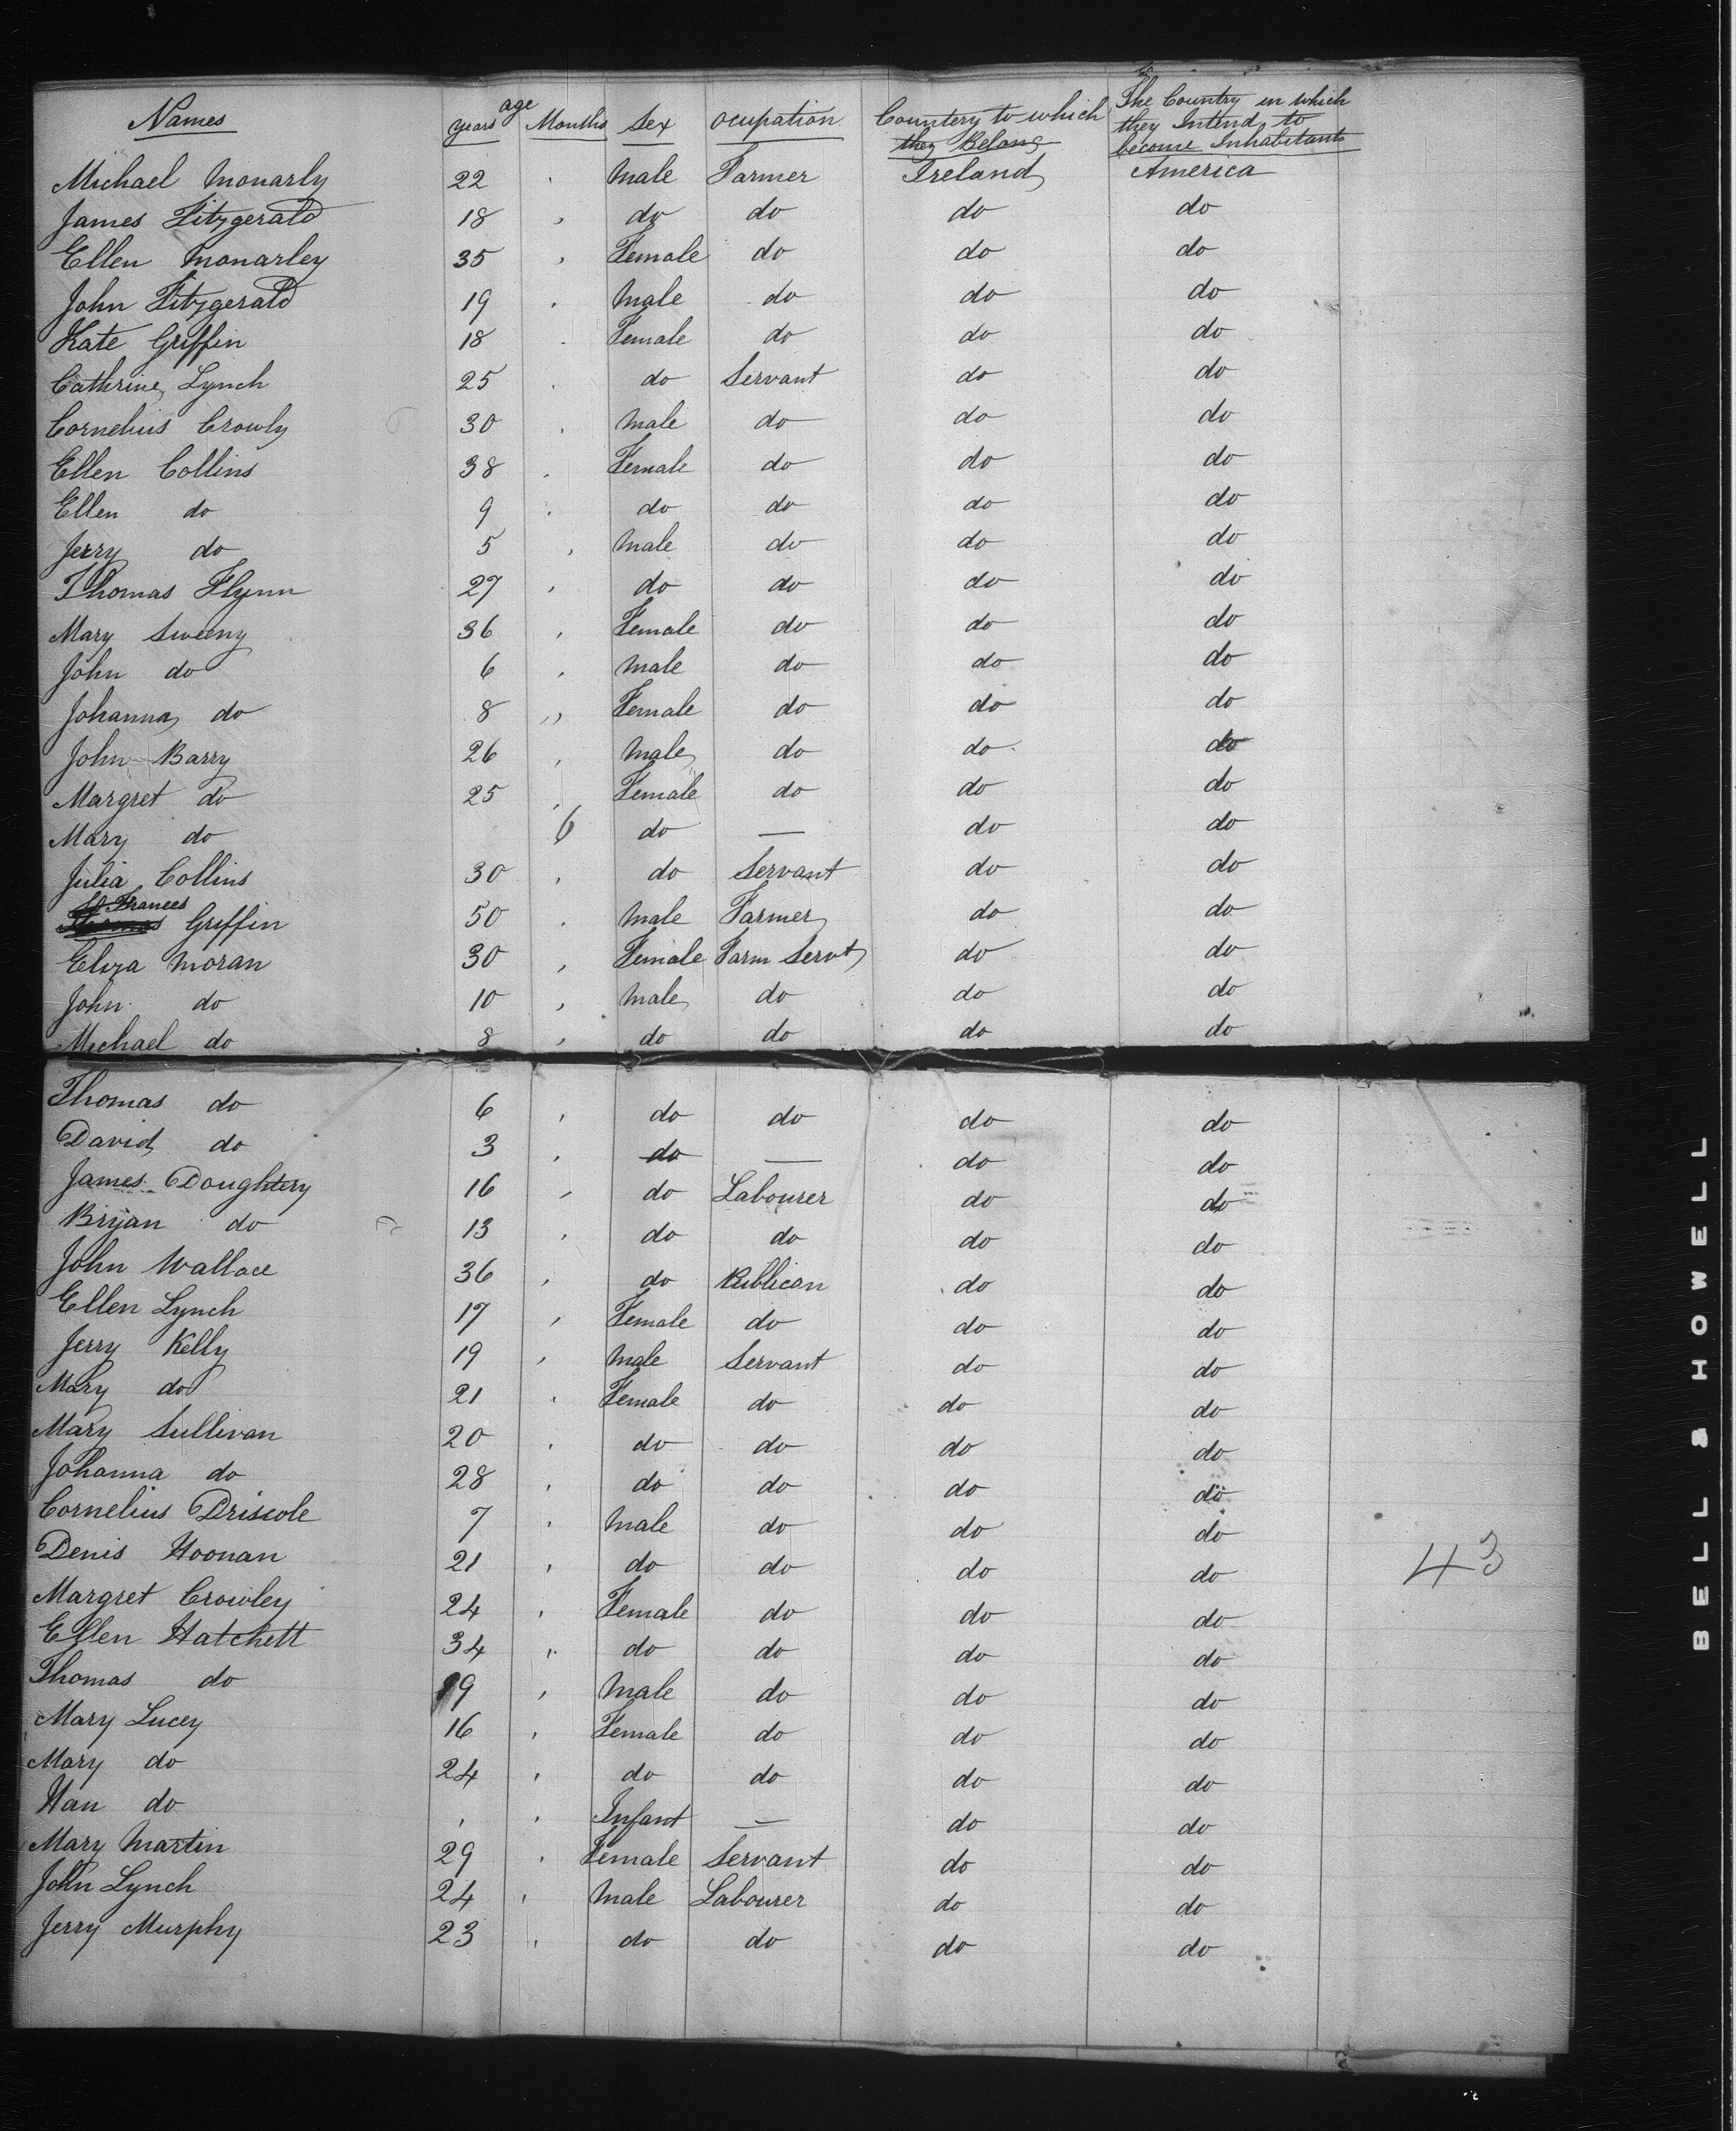 Names age years Months Sex Ocupation Countery to which they Belong The Country in which they Intend to become Inhabitants
Michael Monarly 22 Male Farmer Ireland America
James Fitzgerald 18 do do do do
Ellen Monarley 35 Female do do do
John Fitzgerald 19 Male do do do
Kate Griffin 18 Female do do do
Cathrine Lynch 25 do Servant do do
Cornelius Crowly 30 Male do do do
Ellen Collins 38 Female do do do
Ellen do 9 do do do do
Jerry do 5 Male do do do
Thomas Flynn 27 do do do do
Mary Sweeny 36 Female do do do
John do 6 Male do do do
Johanna do 8 Female do do do
John Barry 26 Male do do do
Margret do 25 Female do do do
Mary do 6 do — do do
Julia Collins 30 do Servant do do
Frances Griffin 50 Male Farmer do do
Eliza Moran 30 Female Farm Servt do do
John do 10 Male do do do
Michael do 8 do do do do
Thomas do 6 do do do do
David do 3 do — do do
James Doughtery 16 do Labourer do do
Bryan do 13 do do do do
John Wallace 36 do Publican do do
Ellen Lynch 17 Female do do do
Jerry Kelly 19 Male Servant do do
Mary do 21 Female do do do
Mary Sullivan 20 do do do do
Johanna do 28 do do do do
Cornelius Driscole 7 Male do do do
Denis Hoonan 21 do do do do
43
Margret Crowley 24 Female do do do
Ellen Hatchett 34 do do do do
Thomas do 9 Male do do do
Mary Lucey 16 Female do do do
Mary do 24 do do do do
Han do Infant — do do
Mary Martin 29 Female Servant do do
John Lynch 24 Male Labourer do do
Jerry Murphy 23 do do do do
BELL & HOWELL